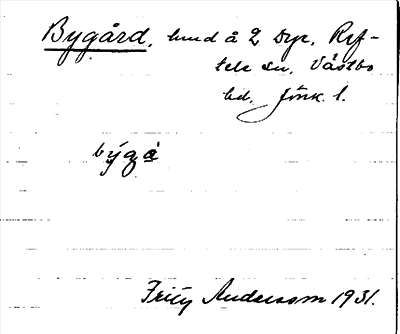 Bygård, hmd å 2 Dyr, Ref-
tele sn, Västbo
hd. Jönk. l.
býgå
Fritz Andersson 1931.